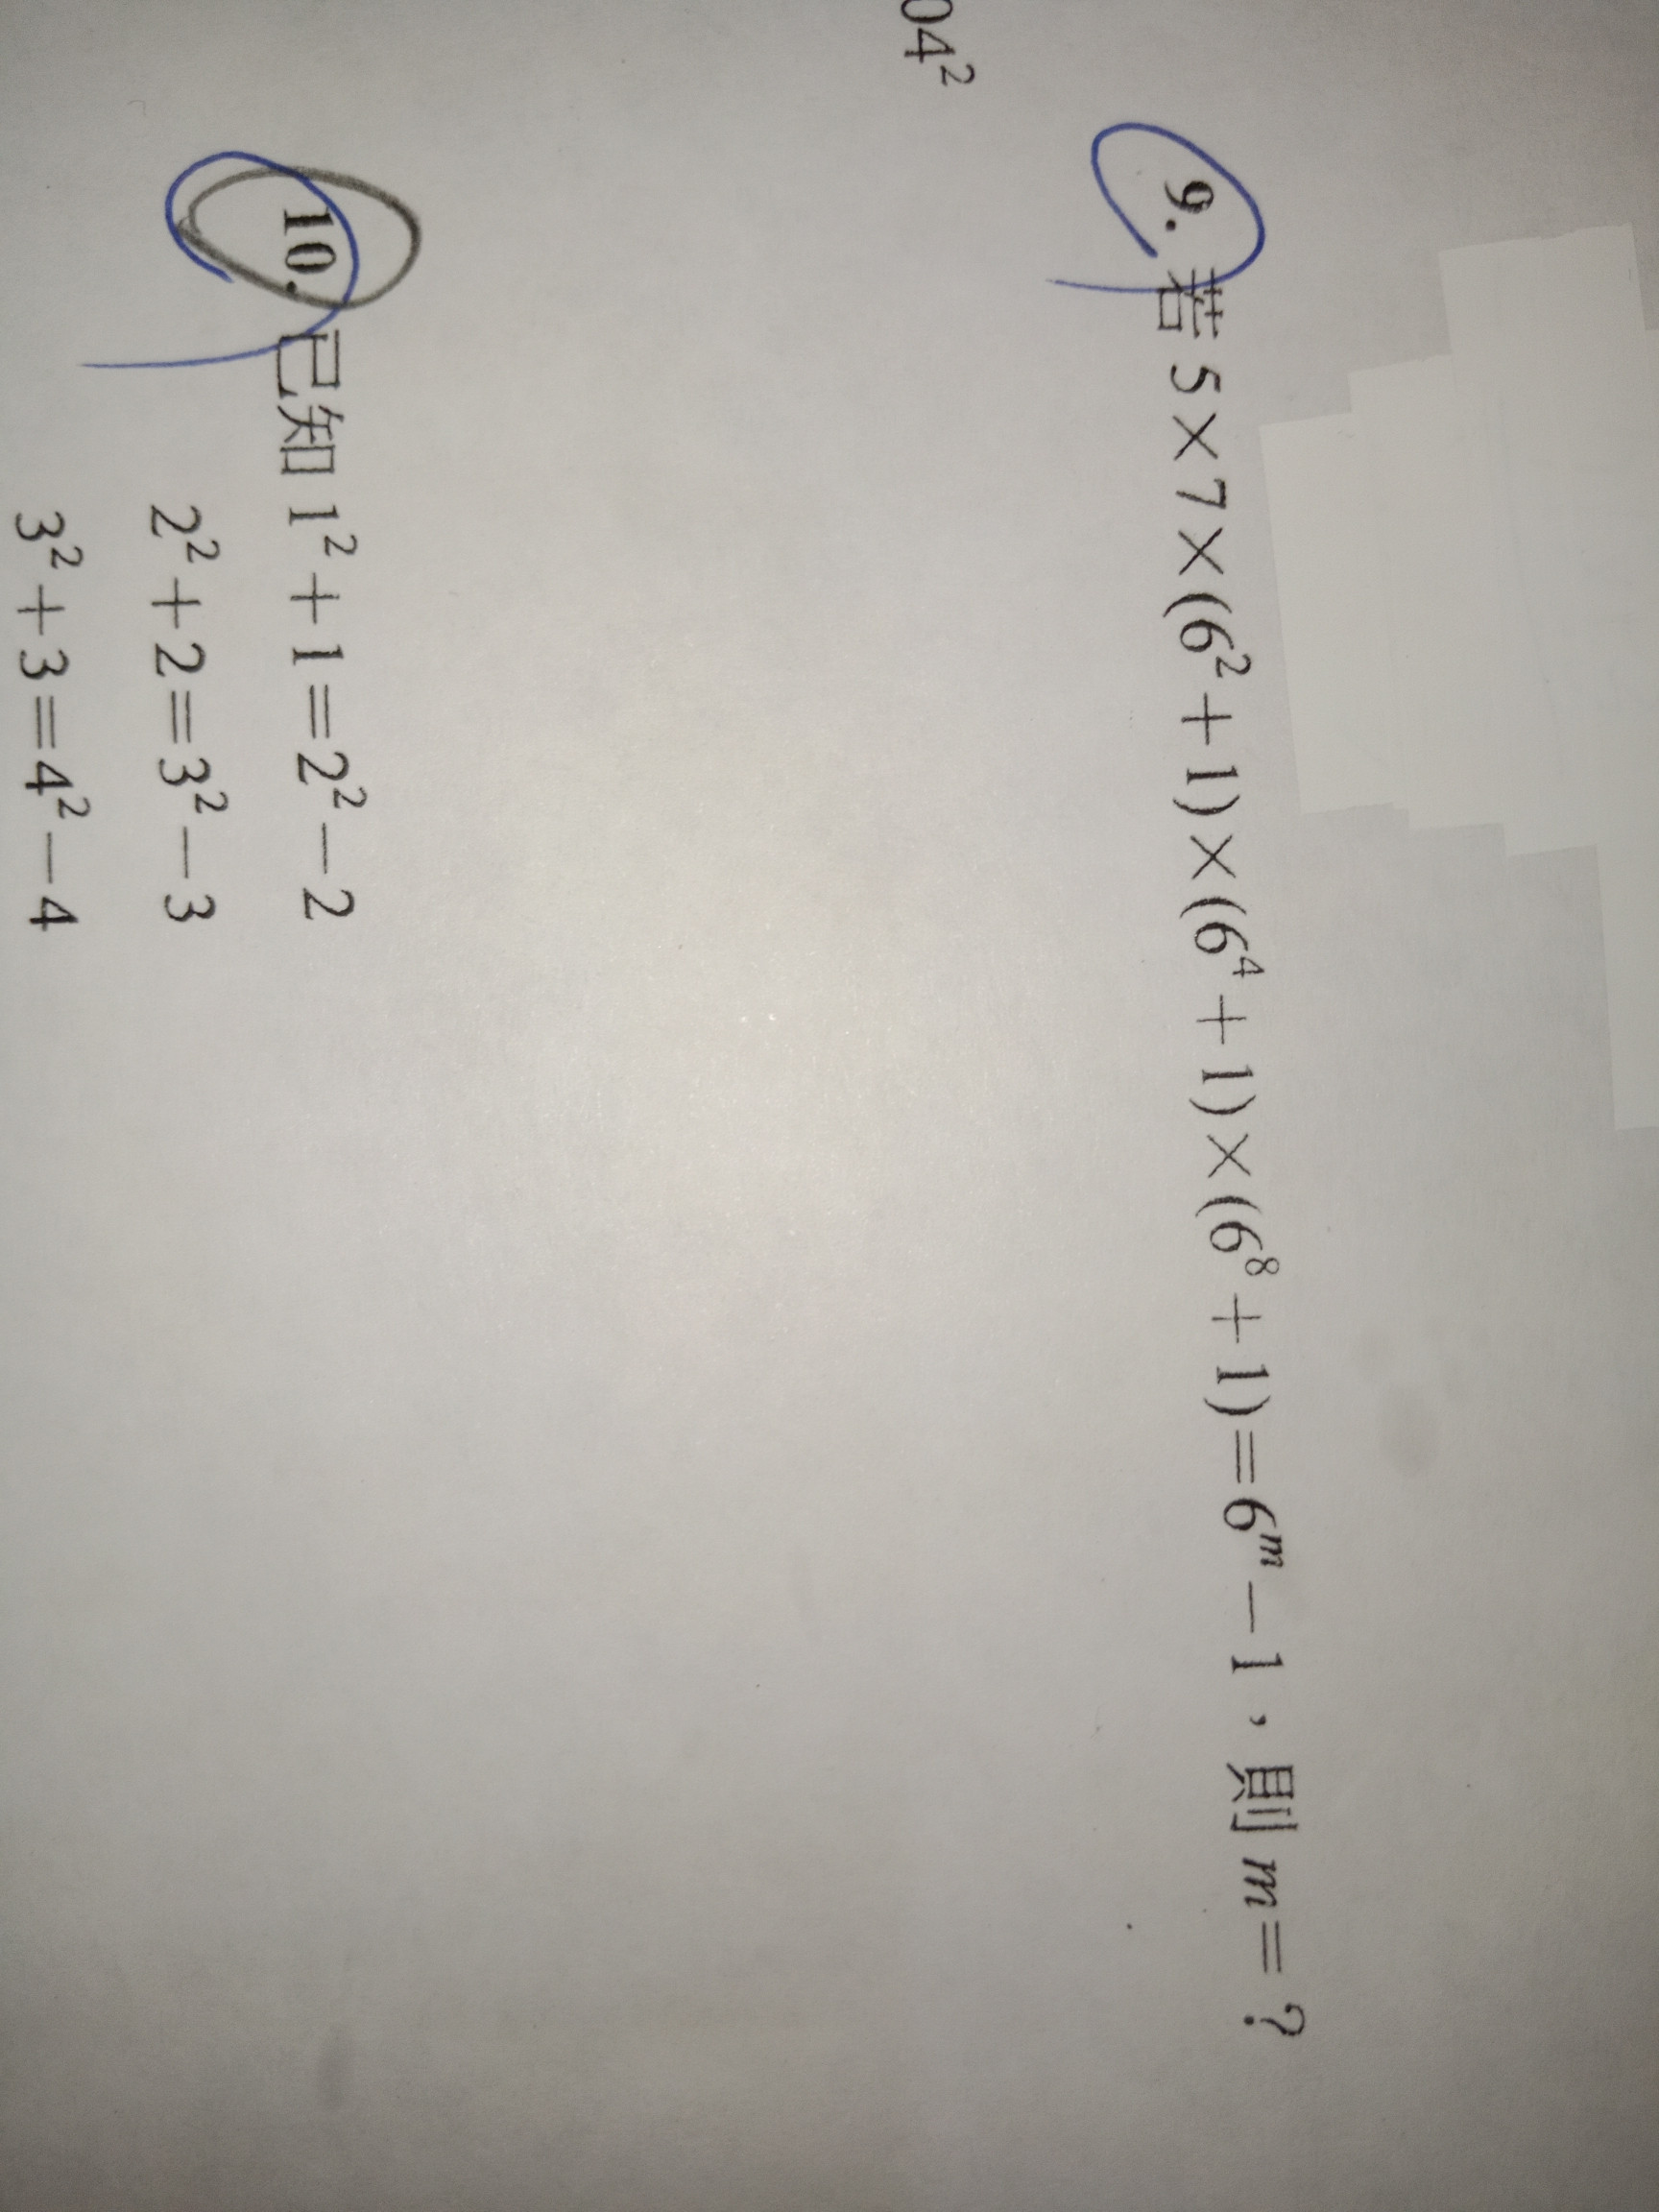 04²
9. 若 5×7×(6²+1)×(6⁴+1)×(6⁸+1)=6ᵐ−1，則 m=？
10. 已知 1²+1=2²−2
2²+2=3²−3
3²+3=4²−4